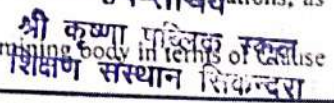 श्री कृष्णा पब्लिक स्कूल
mining body in terms of Clause
शिक्षण संस्थान सिकन्दरा